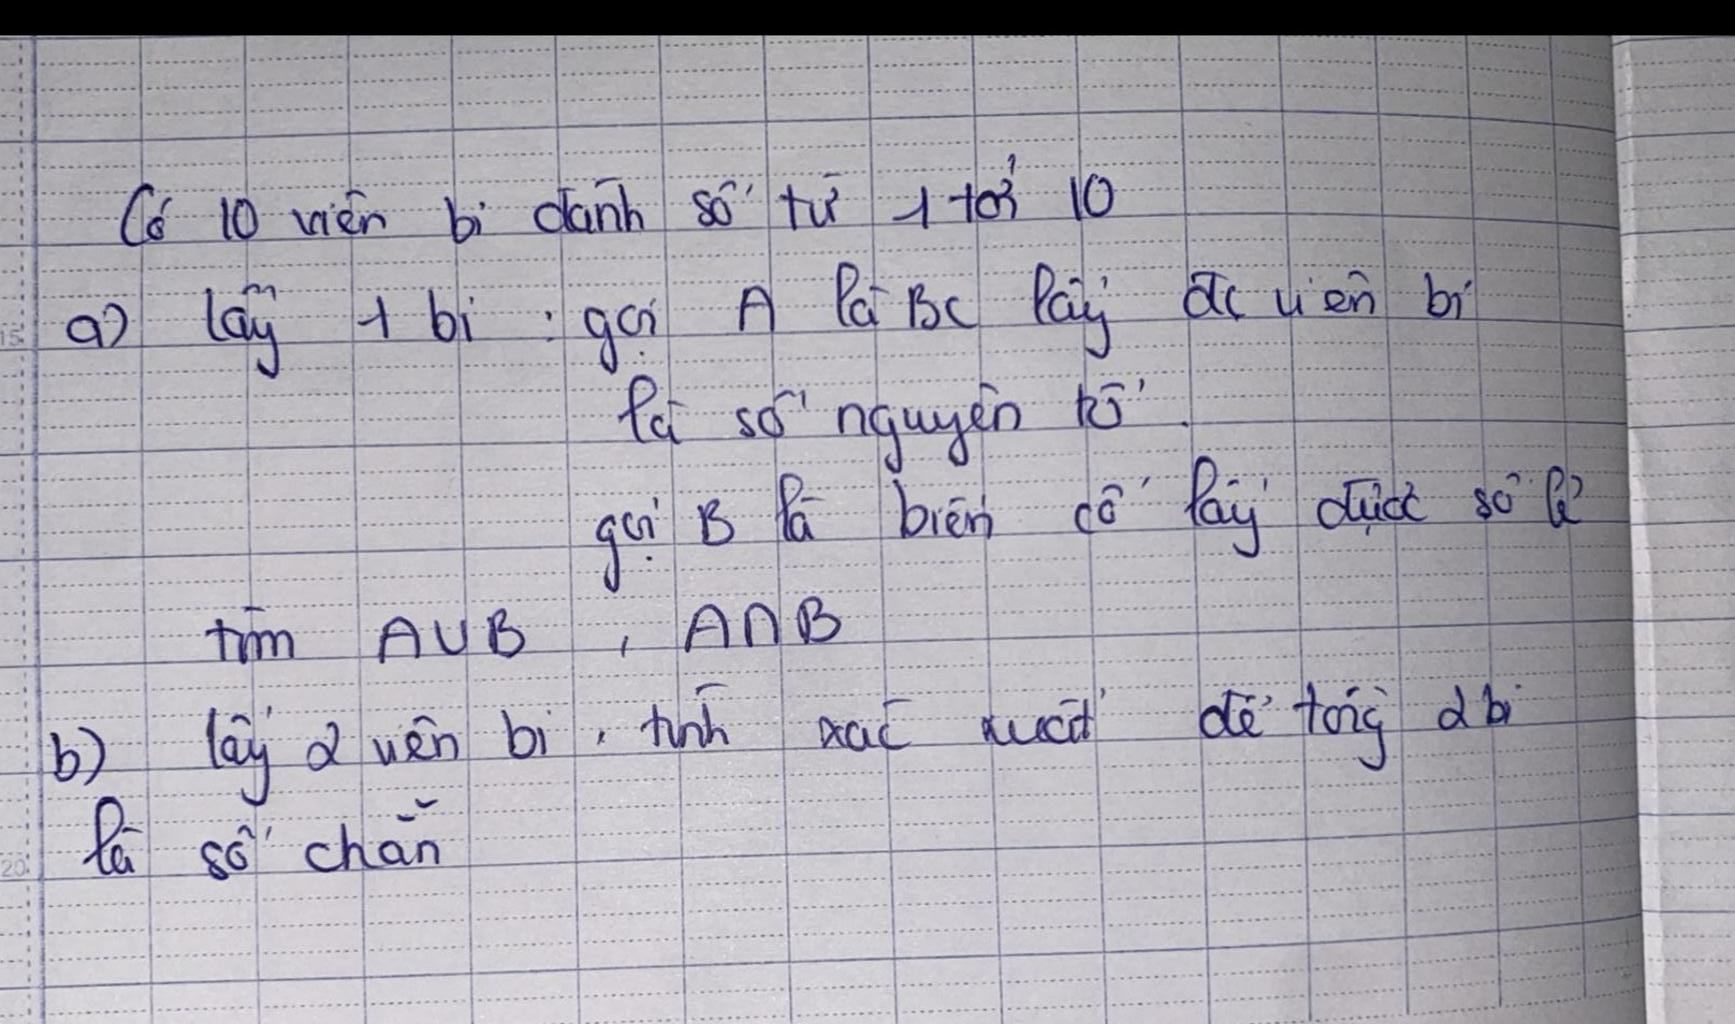 Có 10 viên bi đánh số từ 1 tới 10
a) lấy 1 bi : gọi A là BC lấy đc viên bi
là số nguyên tố.
gọi B là biến cố lấy được số lẻ
tìm A∪B , A∩B
b) lấy 2 viên bi, tính xác xuất để tổng 2 bi
là số chẵn